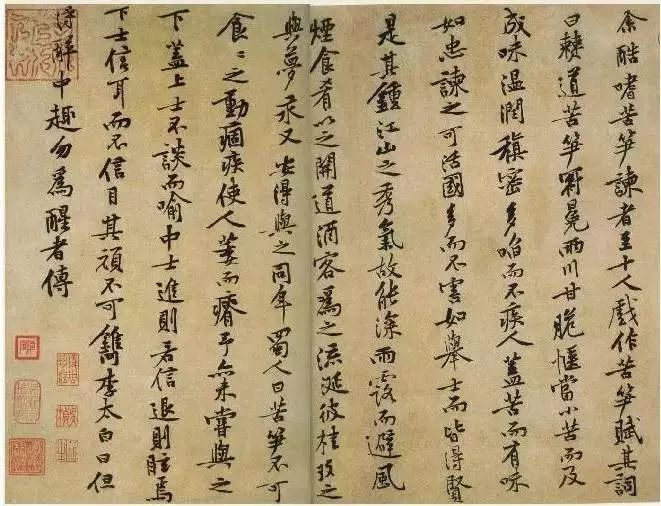 余酷嗜苦笋諫者至十人戲作苦笋賦其詞
曰僰道苦笋冠冕兩川甘脆愜當小苦而及
成味溫潤稹密多啗而不疾人蓋苦而有味
如忠諫之可活國多而不害如舉士而皆得賢
是其鍾江山之秀氣故能深雨露而避風
煙食肴以之開道酒客為之流涎彼桂玫之
與夢永又安得與之同年蜀人曰苦笋不可
食食之動痼疾使人萎而瘠予亦未嘗與之
下蓋上士不談而喻中士進則若信退則眩焉
下士信耳而不信目其頑不可鐫李太白曰但
得醉中趣勿為醒者傳